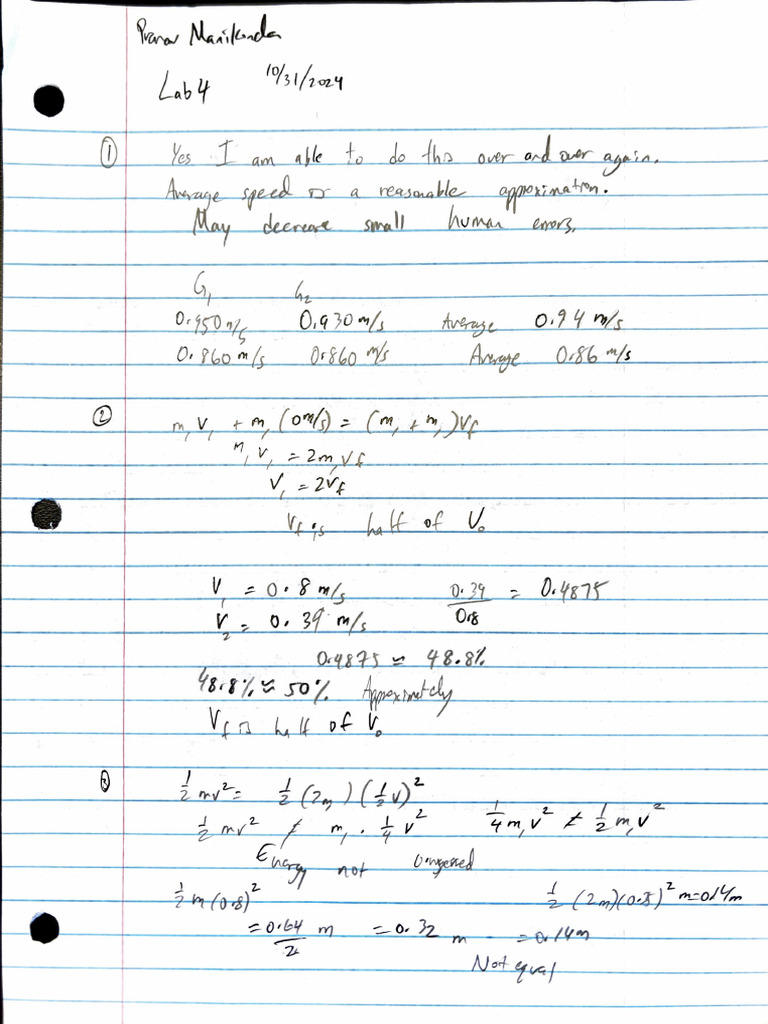 Lab 4 10/31/2024
① Yes I am able to do this over and over again.
Average speed is a reasonable approximation.
May decrease small human errors.
G₁ G₂
0.950 m/s 0.930 m/s Average 0.94 m/s
0.860 m/s 0.860 m/s Average 0.86 m/s
② m₁ V₁ + m₁ (0 m/s) = (m₁ + m₁) Vf
m₁ V₁ = 2m₁ Vf
V₁ = 2Vf
Vf is half of V₀
V₁ = 0.8 m/s 0.39/0.8 = 0.4875
V₂ = 0.39 m/s
0.4875 ≈ 48.8%
48.8% ≈ 50% Approximately
Vf is half of V₀
③ ½ mv² = ½ (2m) (½ v)²
½ mv² ≠ m₁ · ¼ v² ¼ m₁v² ≠ ½ m₁v²
Energy not
½ m (0.8)² ½ (2m) m = 0.14m
= 0.64/2 m = 0.32 m = 0.14m
Not equal